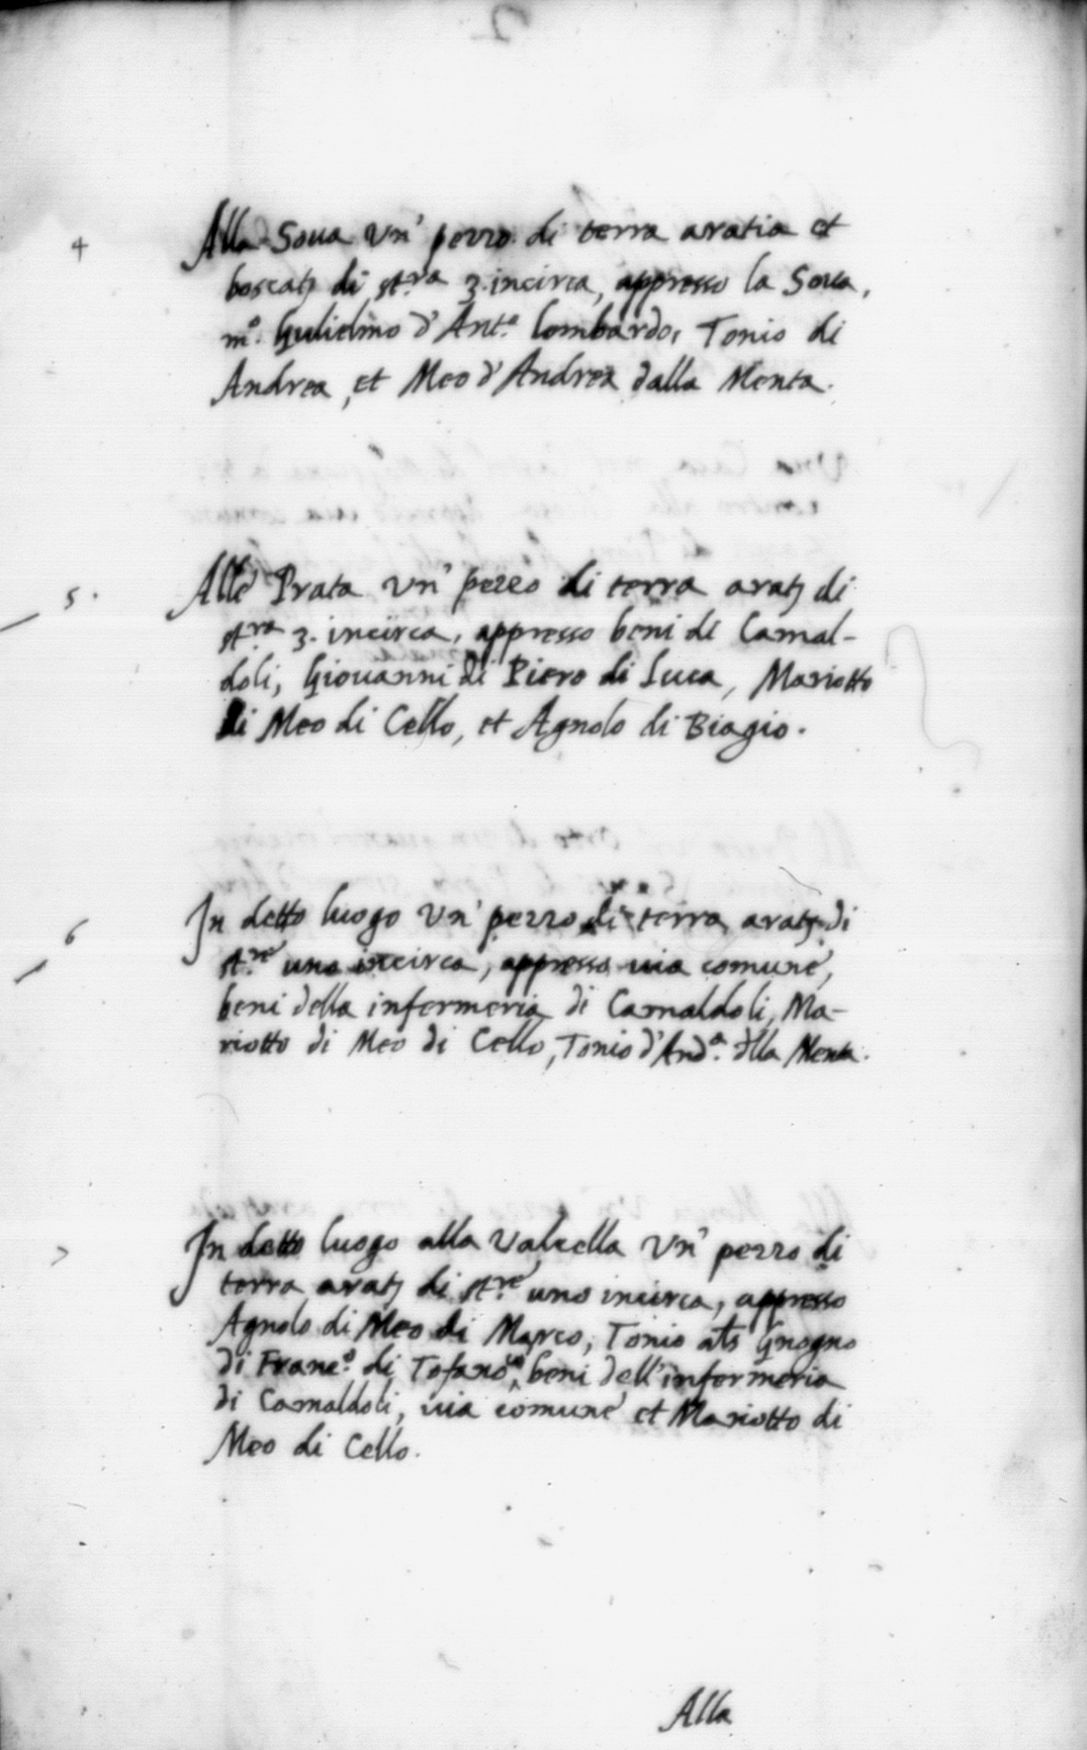 4
Alla Soua Vn' pezzo di terra aratia et
boscatj di st.ra 3. incirca, appresso la Soua,
m.o Gulielmo d'Ant.o lombardo, Tonio di
Andrea, et Meo d'Andrea dalla Menta.
5.
Alle Prata Vn' pezzo di terra aratj di
st.ra 3. incirca, appresso beni di Camal-
doli, Giouanni di Piero di Luca, Mariotto
di Meo di Cello, et Agnolo di Biagio.
6
In detto luogo Vn' pezzo di terra aratj di
st.re uno incirca, appresso uia comune,
beni della infermeria di Camaldoli, Ma-
riotto di Meo di Cello, Tonio d'And.a dlla Menta.
7
In detto luogo alla Valcella Vn' pezzo di
terra aratj di st.re uno incirca, appresso
Agnolo di Meo di Marco, Tonio als Gnogno
di Franc.o di Tofano, beni dell'infermeria
di Camaldoli, uia comune et Mariotto di
Meo di Cello.
Alla